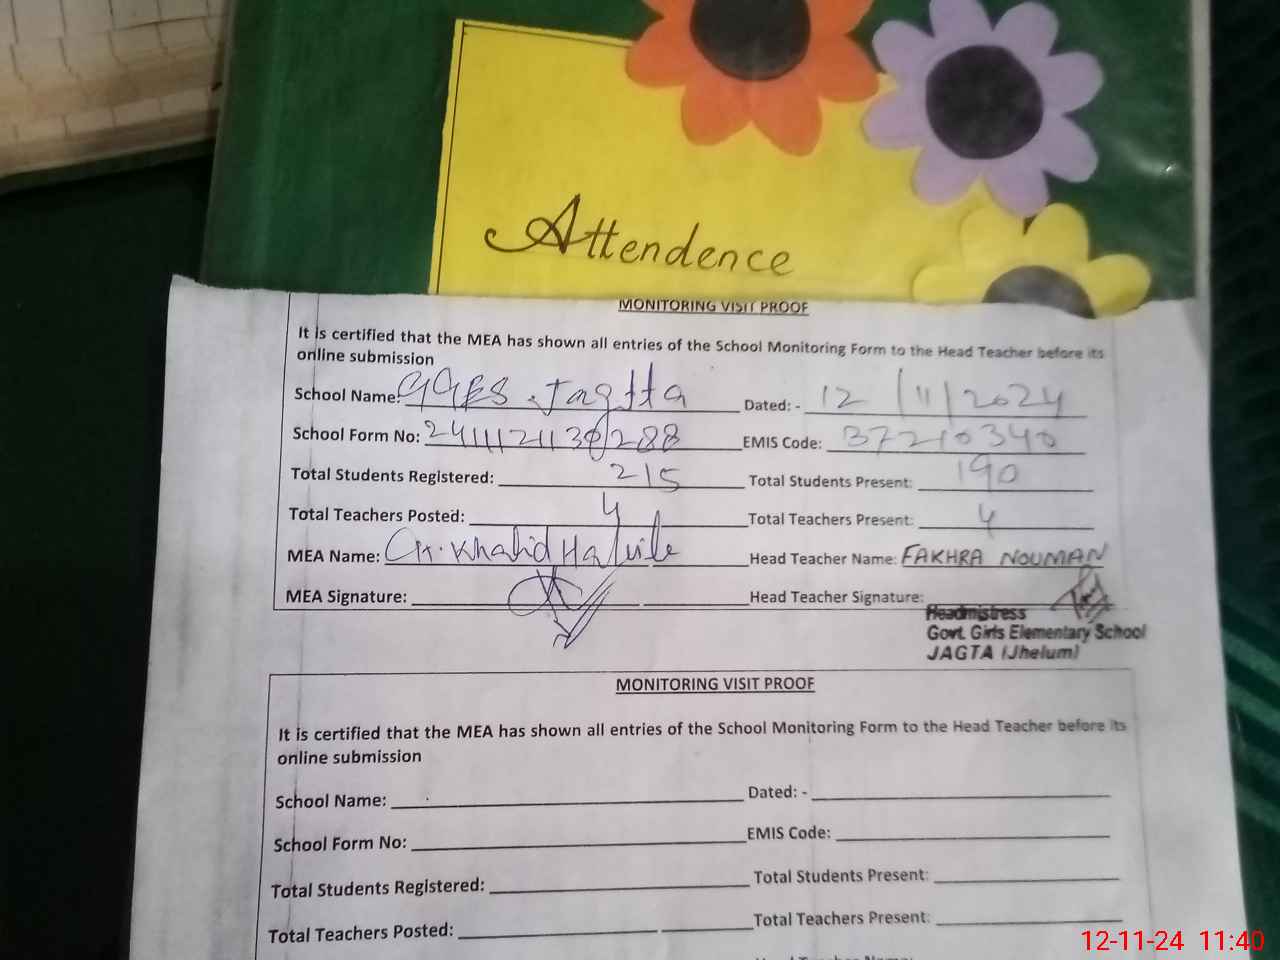 Attendence
MONITORING VISIT PROOF
It is certified that the MEA has shown all entries of the School Monitoring Form to the Head Teacher before its
online submission
School Name: GGES Jagtta Dated: - 12/11/2024
School Form No: EMIS Code: 37210340
Total Students Registered: 215 Total Students Present: 190
Total Teachers Posted: 4 Total Teachers Present: 4
MEA Name: Ch. Khalid Head Teacher Name: FAKHRA NOUMAN
MEA Signature: Head Teacher Signature:
Headmistress
Govt. Girls Elementary School
JAGTA (Jhelum)
MONITORING VISIT PROOF
It is certified that the MEA has shown all entries of the School Monitoring Form to the Head Teacher before its
online submission
School Name: Dated: -
School Form No: EMIS Code:
Total Students Registered: Total Students Present:
Total Teachers Posted: Total Teachers Present:
12-11-24 11:40